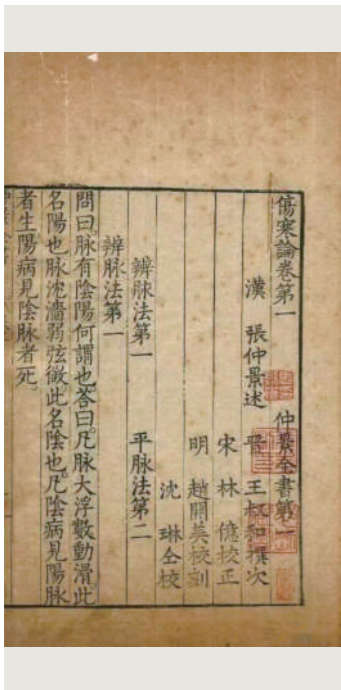 傷寒論卷第一　仲景全書第一
漢　張仲景述　晉　王叔和撰次
宋　林　億校正
明　趙開美校刻
沈　琳仝校
辨脉法第一　平脉法第二
辨脉法第一
問曰。脉有陰陽何謂也。答曰。凡脉大浮數動滑。此
名陽也。脉沈濇弱弦微。此名陰也。凡陰病見陽脉
者生。陽病見陰脉者死。